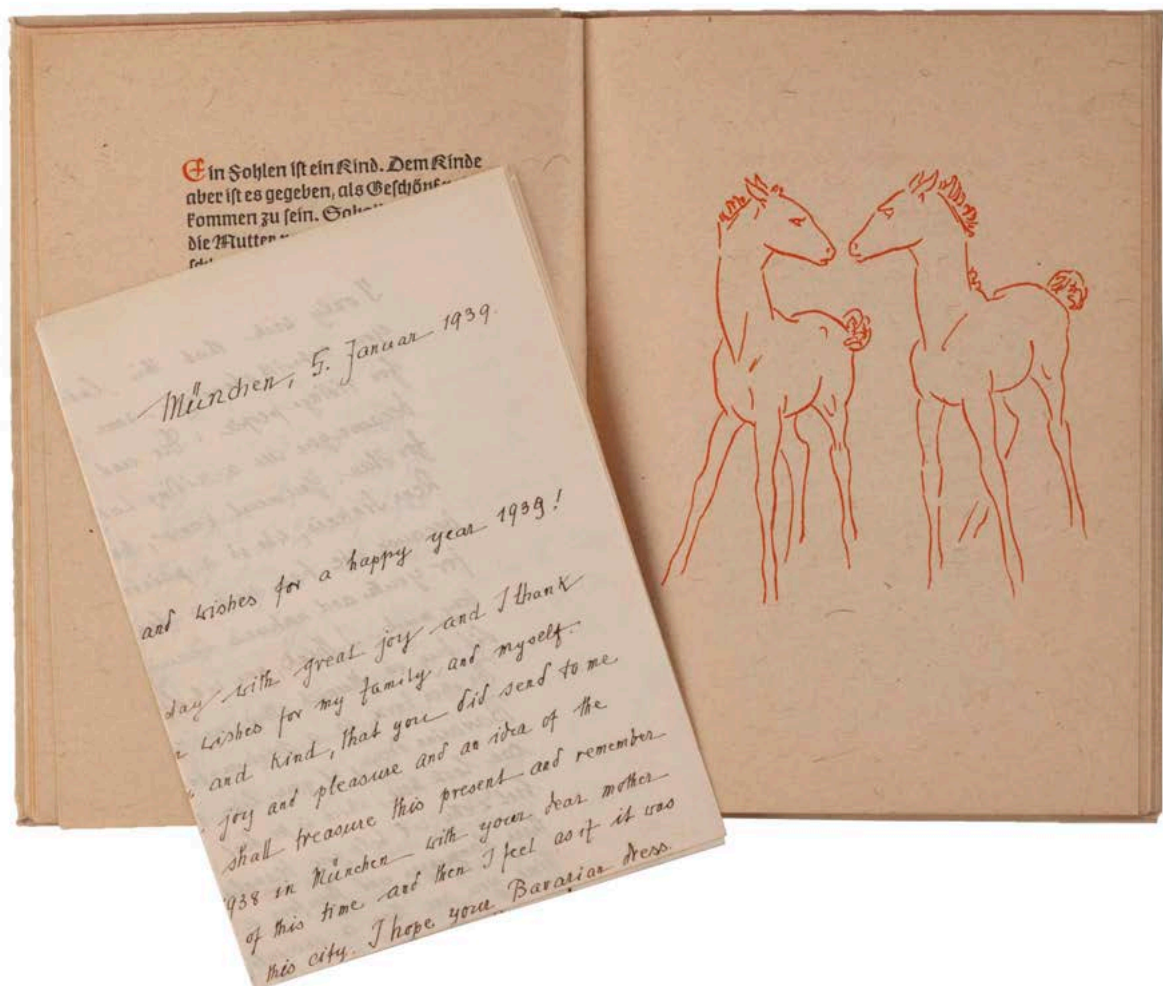 Ein Fohlen ist ein Kind. Dem Kinde
aber ist es gegeben, als Geschöpf
kommen zu sein.
die Mutter
München, 5. Januar 1939.
and wishes for a happy year 1939!
day with great joy and I thank
wishes for my family and myself.
and kind, that you did send to me
joy and pleasure and an idea of the
shall treasure this present and remember
1938 in München with your dear mother
of this time and then I feel as if it was
this city. I hope your Bavarian dress